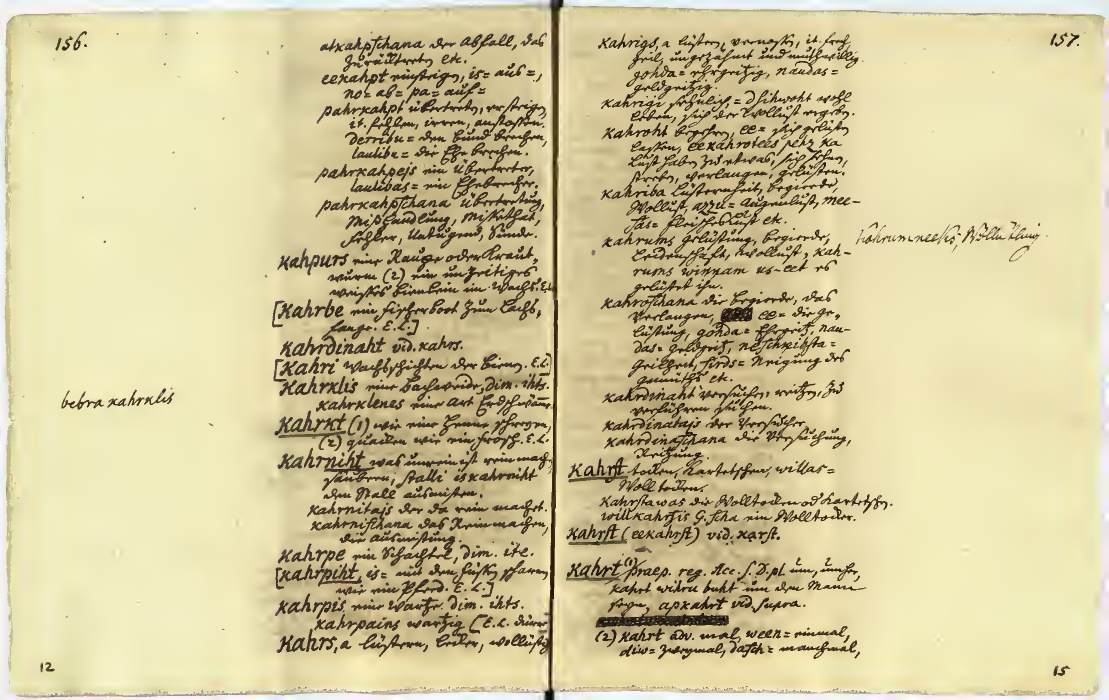 156.
atkahpschana der Abfall, das
Zurücktreten etc.
eekahpt einsteigen, is= aus=,
no= ab= pa= auf=
pahrkahpt übertreten, ersteigen
it. fehlen, irren, anstoßen.
derribu= den bund brechen,
laulibu= die Ehe brechen.
pahrkahpejs ein Übertreter,
laulibas= ein Ehebrecher.
pahrkahpschana Übertretung,
Mißhandlung, Missethat,
Fehler, Untugend, Sünde.
Kahpurs eine Raupe oder Kraut,
wurm (2) ein unzeitiges
weißes bienlein im Wachs. E.L.
[Kahrbe ein fischerboot zum Lachs,
fange. E.L.]
Kahrdinaht vid. kahrs.
[Kahri Wachsschichten der bienen. E.L.]
Kahrklis eine Bachweide, dim. ihts.
kahrklenes eine Art Erdschwämme
bebra kahrklis
Kahrkt (1) wie eine Henne schreyen,
(2) quacken wie ein frosch. E.L.
Kahrniht was unrein ist rein mach
säubern, stalli iskahrniht
den Stall ausmisten.
kahrnitajs der da rein machet.
kahrnischana das Reinmachen,
die Ausmistung.
Kahrpe ein Schachtel, dim. ite.
[Kahrpiht, is= mit den füßen scharren
wie ein Pferd. E.L.]
Kahrpis, eine Wartze. dim. ihts.
kahrpains wartzig [E.L. dürre
Kahrs, a lüstern, lecker, wollüstig
12
157.
Kahrigs, a lüstern, vernascht, it. frech
geil, ungezähmt und muthwillig.
gohda= ehrgeitzig, naudas=
geldgeitzig.
kahrigi sehnlich, = dsihwoht wohl
leben, sich der Wollust ergeben.
kahroht begehren, ee= sich gelüsten
lassen, eekahrotees pehz ka
Lust haben zu etwas, sich sehnen,
streben, verlangen, gelüsten.
kahriba Lüsternheit, begierde,
Wollust, azzu= Augenlust, mee-
sas= fleischeslust etc.
kahrums gelüstung, begierde,
Leidenschaft, Wollust, kah-
rums winnam us-eet es
gelüstet ihn.
kahrumneekis, Wollüstling.
kahroschana die begierde, das
Verlangen, ee= die ge,
lüstung, gohda= Ehrgeitz, nau-
das= geldgeitz, neschkihsta=
geilheit, sirds= Neigung des
gemüths etc.
kahrdinaht versuchen, reitzen, zu
verführen suchen.
kahrdinatajs der Versucher,
kahrdinaschana die Versuchung,
Reitzung.
Kahrst tocken, Kartetschen, willas=
Woll tocken.
kahrstawas die Wolltocken od Kartetschn.
willkahrsis G. scha ein Wolltocker.
Kahrst (eekahrst) vid. karst.
Kahrt (1) Praep. reg. Acc. s. D. pl. um, umher,
kahrt wihru buht um dem Mann
seyn, apkahrt vid. supra.
(2) kahrt adv. mal, ween= einmal,
diw= zweymal, dasch= manchmal,
15